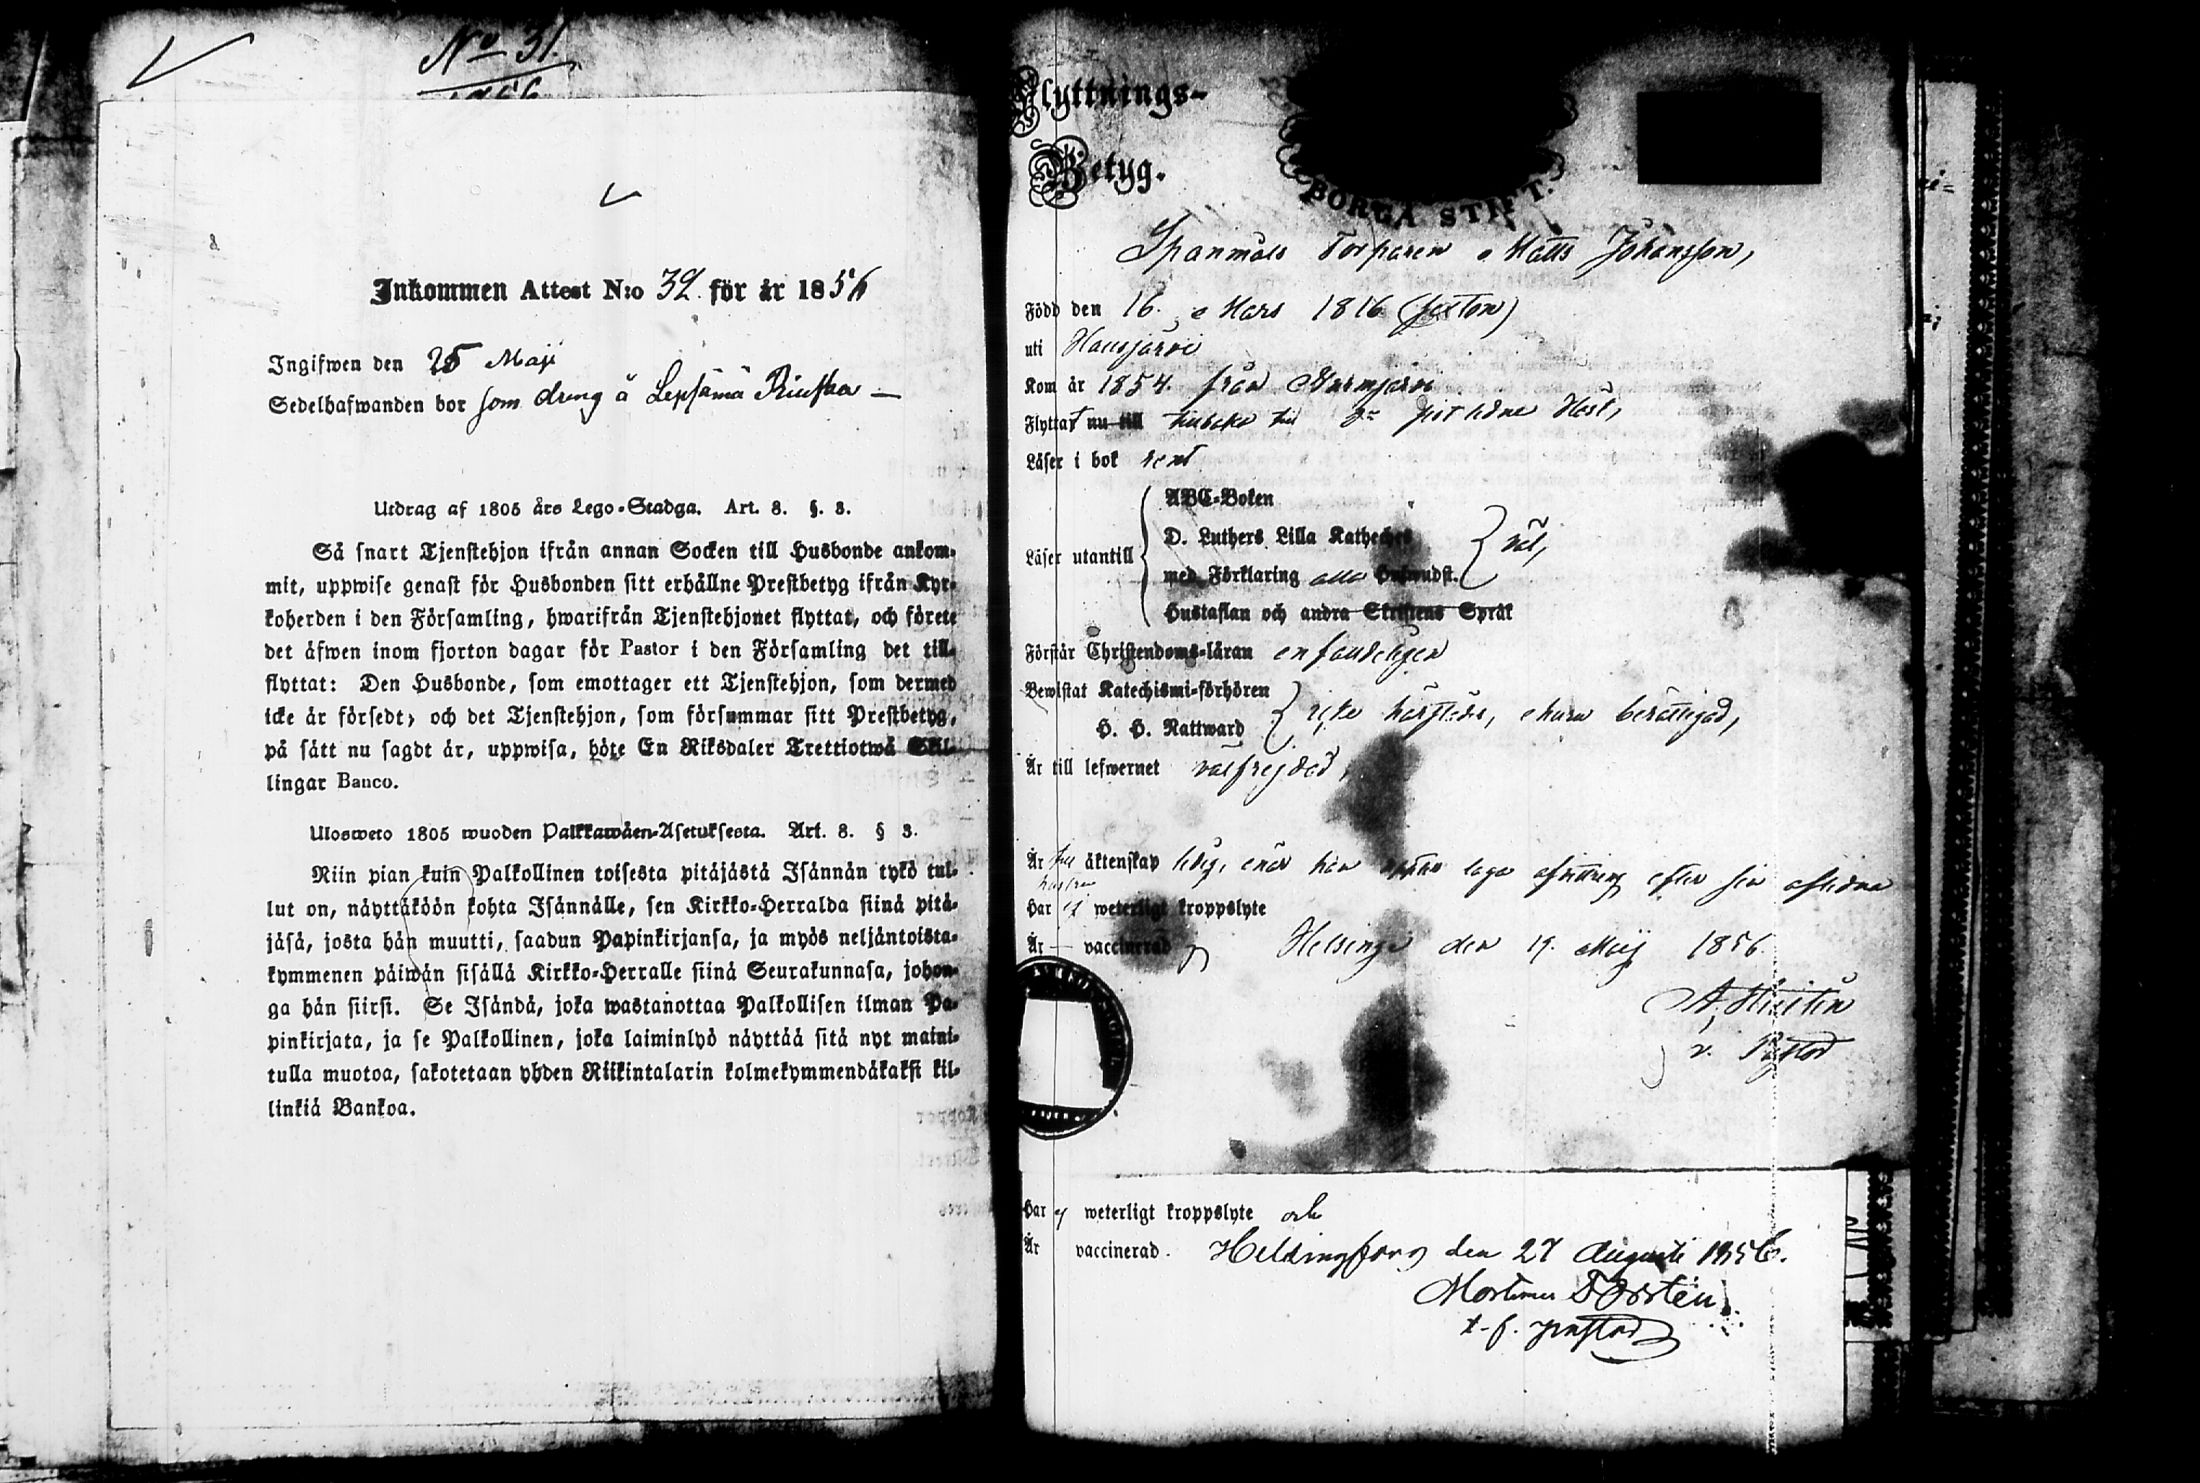 No 31.
Inkommen Attest N:o 32. för år 1856
Ingifwen den 25 Maji
Sedelhafwanden bor som dreng å Lepsämä Riuska —
Utdrag af 1805 års Lego-Stadga. Art. 8. §. 3.
Så snart Tjenstehjon ifrån annan Socken till Husbonde ankom-
mit, uppwise genast för Husbonden sitt erhållne Prestbetyg ifrån Kyr-
koherden i den Församling, hwarifrån Tjenstehjonet flyttat, och förete
det äfwen inom fjorton dagar för Pastor i den Församling det till-
flyttat: Den Husbonde, som emottager ett Tjenstehjon, som dermed
icke är försedt, och det Tjenstehjon, som försummar sitt Prestbetyg,
på sätt nu sagdt är, uppwisa, böte En Riksdaler Trettiotwå Skil-
lingar Banco.
Ulosweto 1805 wuoden Palkkawäen-Asetuksesta. Art. 8. § 3.
Niin pian kuin Palkollinen toisesta pitäjästä Isännän tykö tul-
lut on, näyttäköön kohta Isännälle, sen Kirkko-Herralda siinä pitä-
jäsä, josta hän muutti, saadun Papinkirjansa, ja myös neljäntoista-
kymmenen päiwän sisällä Kirkko-Herralle siinä Seurakunnasa, johon-
ga hän siirsi. Se Isändä, joka wastanottaa Palkollisen ilman Pa-
pinkirjata, ja se Palkollinen, joka laiminlyö näyttää sitä nyt maini-
tulla muotoa, sakotetaan yhden Riikintalarin kolmekymmendäkaksi kil-
linkiä Bankoa.
Flyttnings-
Betyg.
BORGÅ STIFT.
Torparen Matts Johansson,
Född den 16. Mars 1816 (sexton)
uti Hausjärvi
Kom år 1854. från Nurmijärvi
Flyttat nu till tillbaka höst,
Läser i bok rent
ABC-Boken
D. Luthers Lilla Kateches
Läser utantill väl,
med Förklaring alla Hufwudst.
Hustaflan och andra Skriftens Språk
Förstår Christendoms-läran enfaldeligen
Bewistat Katechismi-förhören
icke härstädes, berättigad,
H. H. Nattward
Är till lefwernet välfrejdad,
Är till äktenskap ledig, enär han laga afvittring efter sin aflidna
hustru
Har ej weterligt kroppslyte
Är — vaccinerad
Helsinge den 19. Maij 1856.
v. Pastor
Har ej weterligt kroppslyte och
Är vaccinerad. Helsingfors den 27 Augusti 1856.
t. f. pastor